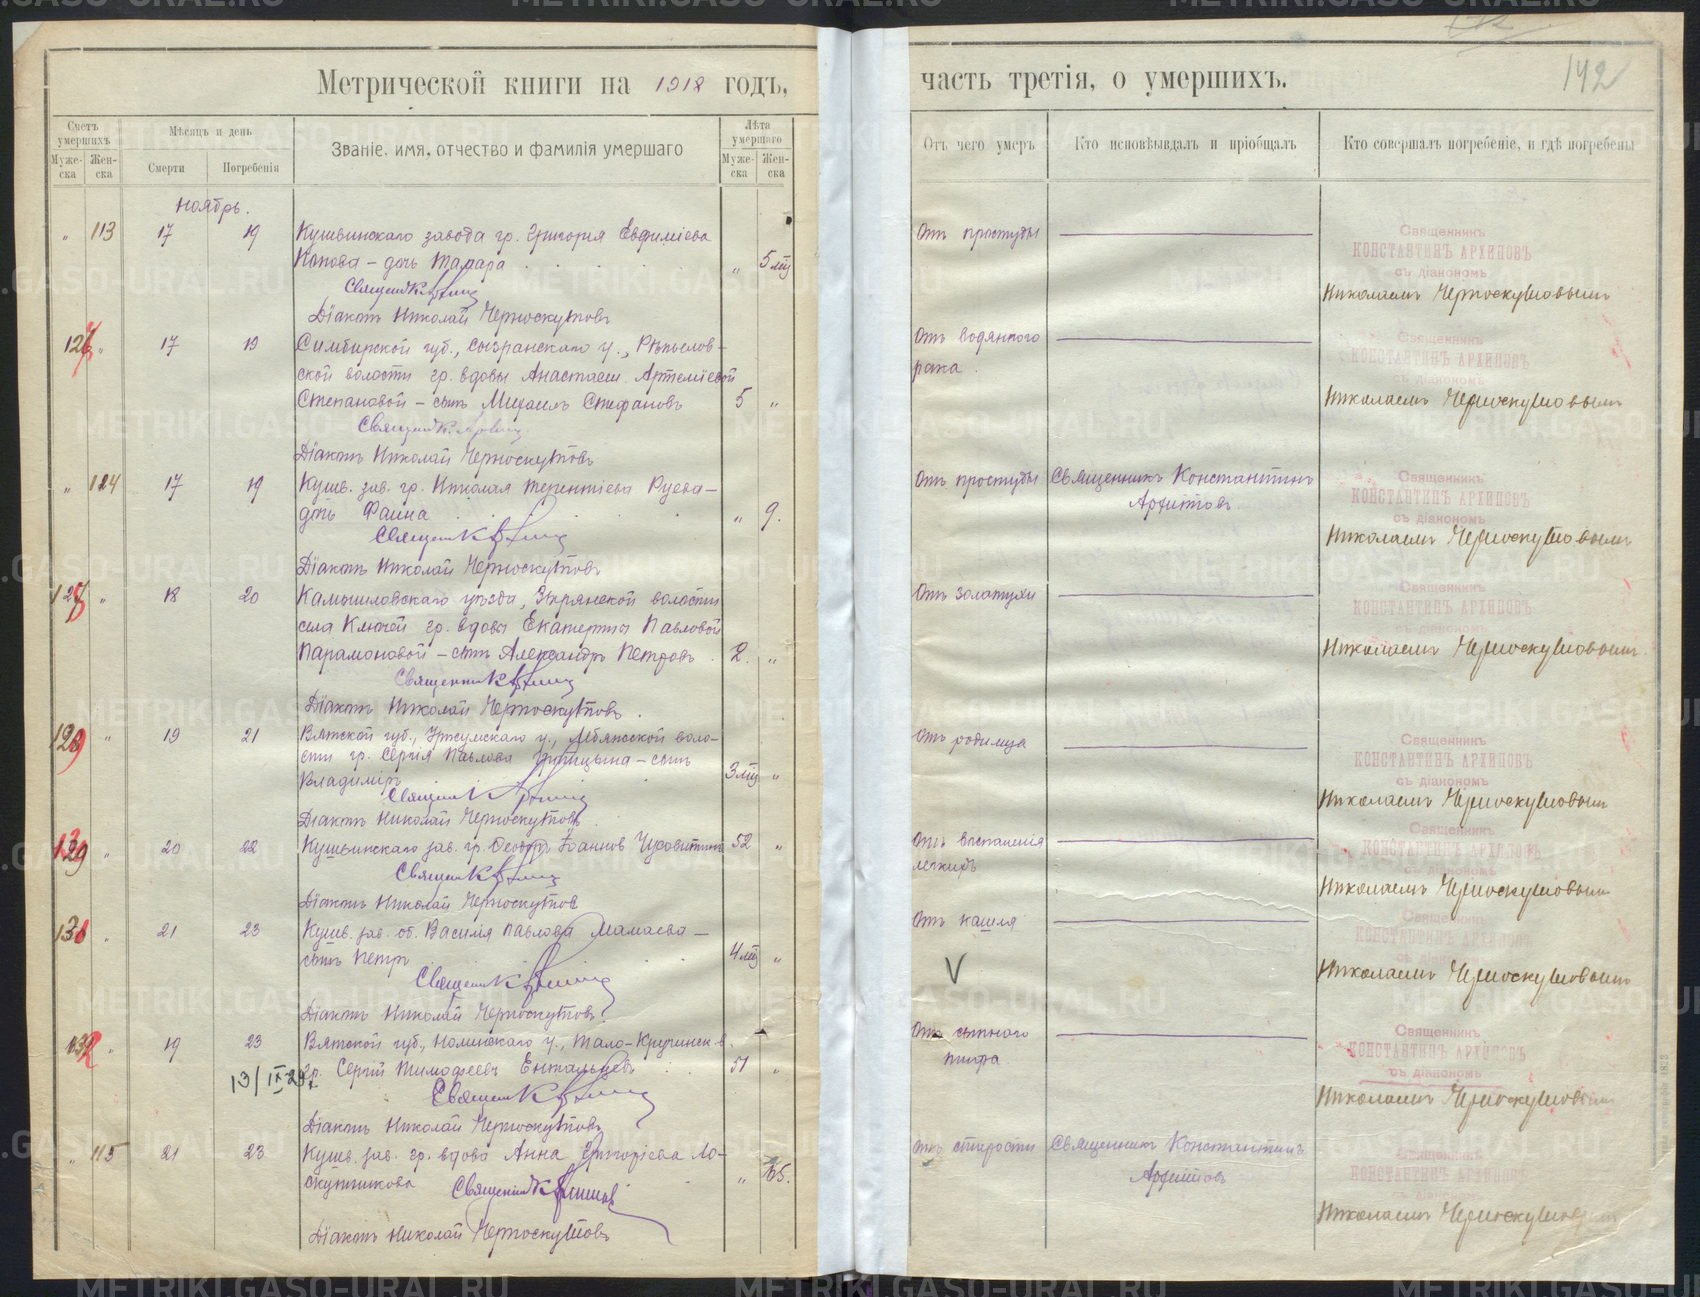 142
Метрической книги на 1918 годъ,
часть третія, о умершихъ.
Счетъ умершихъ
Мѣсяцъ и день
Званіе, имя, отчество и фамилія умершаго
Лѣта умершаго
Отъ чего умеръ
Кто исповѣывалъ и пріобщалъ
Кто совершалъ погребеніе, и гдѣ погребены
Муже-ска
Жен-ска
Смерти
Погребенія
Муже-ска
Жен-ска
Ноябрь.
" 113 17 19 Кушвинскаго завода гр. Григорія Евфиміева
Попова – дочь Тамара " 5 мц
Отъ простуды
Священник
Діаконъ Николай Черноскутовъ
Священникъ
КОНСТАНТИНЪ АРХИПОВЪ
съ діакономъ
Николаемъ Черноскутовымъ
17 19 Симбирской губ., Сызранскаго у.,
ской волости гр. вдовы Анастасіи Артеміевой
Степановой – сынъ Михаилъ Стефановъ 5 "
Отъ водянного
рака
Священ
Діаконъ Николай Черноскутовъ
Священникъ
КОНСТАНТИНЪ АРХИПОВЪ
съ діакономъ
Николаемъ Черноскутовымъ
" 124 17 19 Кушв. зав. гр. Николая Терентіева Руева –
дочь Фаина " 9.
Отъ простуды
Священникъ Константинъ
Архиповъ
Священ
Діаконъ Николай Черноскутовъ
Священникъ
КОНСТАНТИНЪ АРХИПОВЪ
съ діакономъ
Николаемъ Черноскутовымъ
18 20 Камышловскаго уѣзда, Зырянской волости
села Ключей гр. вдовы Екатерины Павловой
Парамоновой – сынъ Александръ Петровъ 2. "
Отъ золотухи
Священник
Діаконъ Николай Черноскутовъ
Священникъ
КОНСТАНТИНЪ АРХИПОВЪ
съ діакономъ
Николаемъ Черноскутовымъ
129 " 19 21 Вятской губ., Уржумскаго у., Лебяжской воло-
сти гр. Сергія Павлова – сынъ
Владиміръ 3 мц "
Отъ родимца
Священ
Діаконъ Николай Черноскутовъ
Священникъ
КОНСТАНТИНЪ АРХИПОВЪ
съ діакономъ
Николаемъ Черноскутовымъ
" 20 22 Кушвинскаго зав. гр. Ѳеодоръ Іоаннов 52 "
Отъ воспаленія
легкихъ
Священ
Діаконъ Николай Черноскутовъ
Священникъ
КОНСТАНТИНЪ АРХИПОВЪ
съ діакономъ
Николаемъ Черноскутовымъ
" 21 23 Кушв. зав. об. Василія Павлова Мамаева –
сынъ Петръ 4 мц "
Отъ кашля
V
Священ
Діаконъ Николай Черноскутовъ
Священникъ
КОНСТАНТИНЪ АРХИПОВЪ
съ діакономъ
Николаемъ Черноскутовымъ
132 " 19 23 Вятской губ., Нолинскаго у., Мало-
гр. Сергій Тимофеевъ Ентальцевъ 51 "
Отъ сыпного
тифа
Священ
Діаконъ Николай Черноскутовъ
Священникъ
КОНСТАНТИНЪ АРХИПОВЪ
съ діакономъ
Николаемъ Черноскутовымъ
" 115 21 23 Кушв. зав. гр. вдова Анна Григоріева Ло-
скутникова " 65.
Отъ старости
Священникъ Константинъ
Архиповъ
Священник Архипов
Діаконъ Николай Черноскутовъ
Священникъ
КОНСТАНТИНЪ АРХИПОВЪ
Николаемъ
METRIKI.GASO-URAL.RU